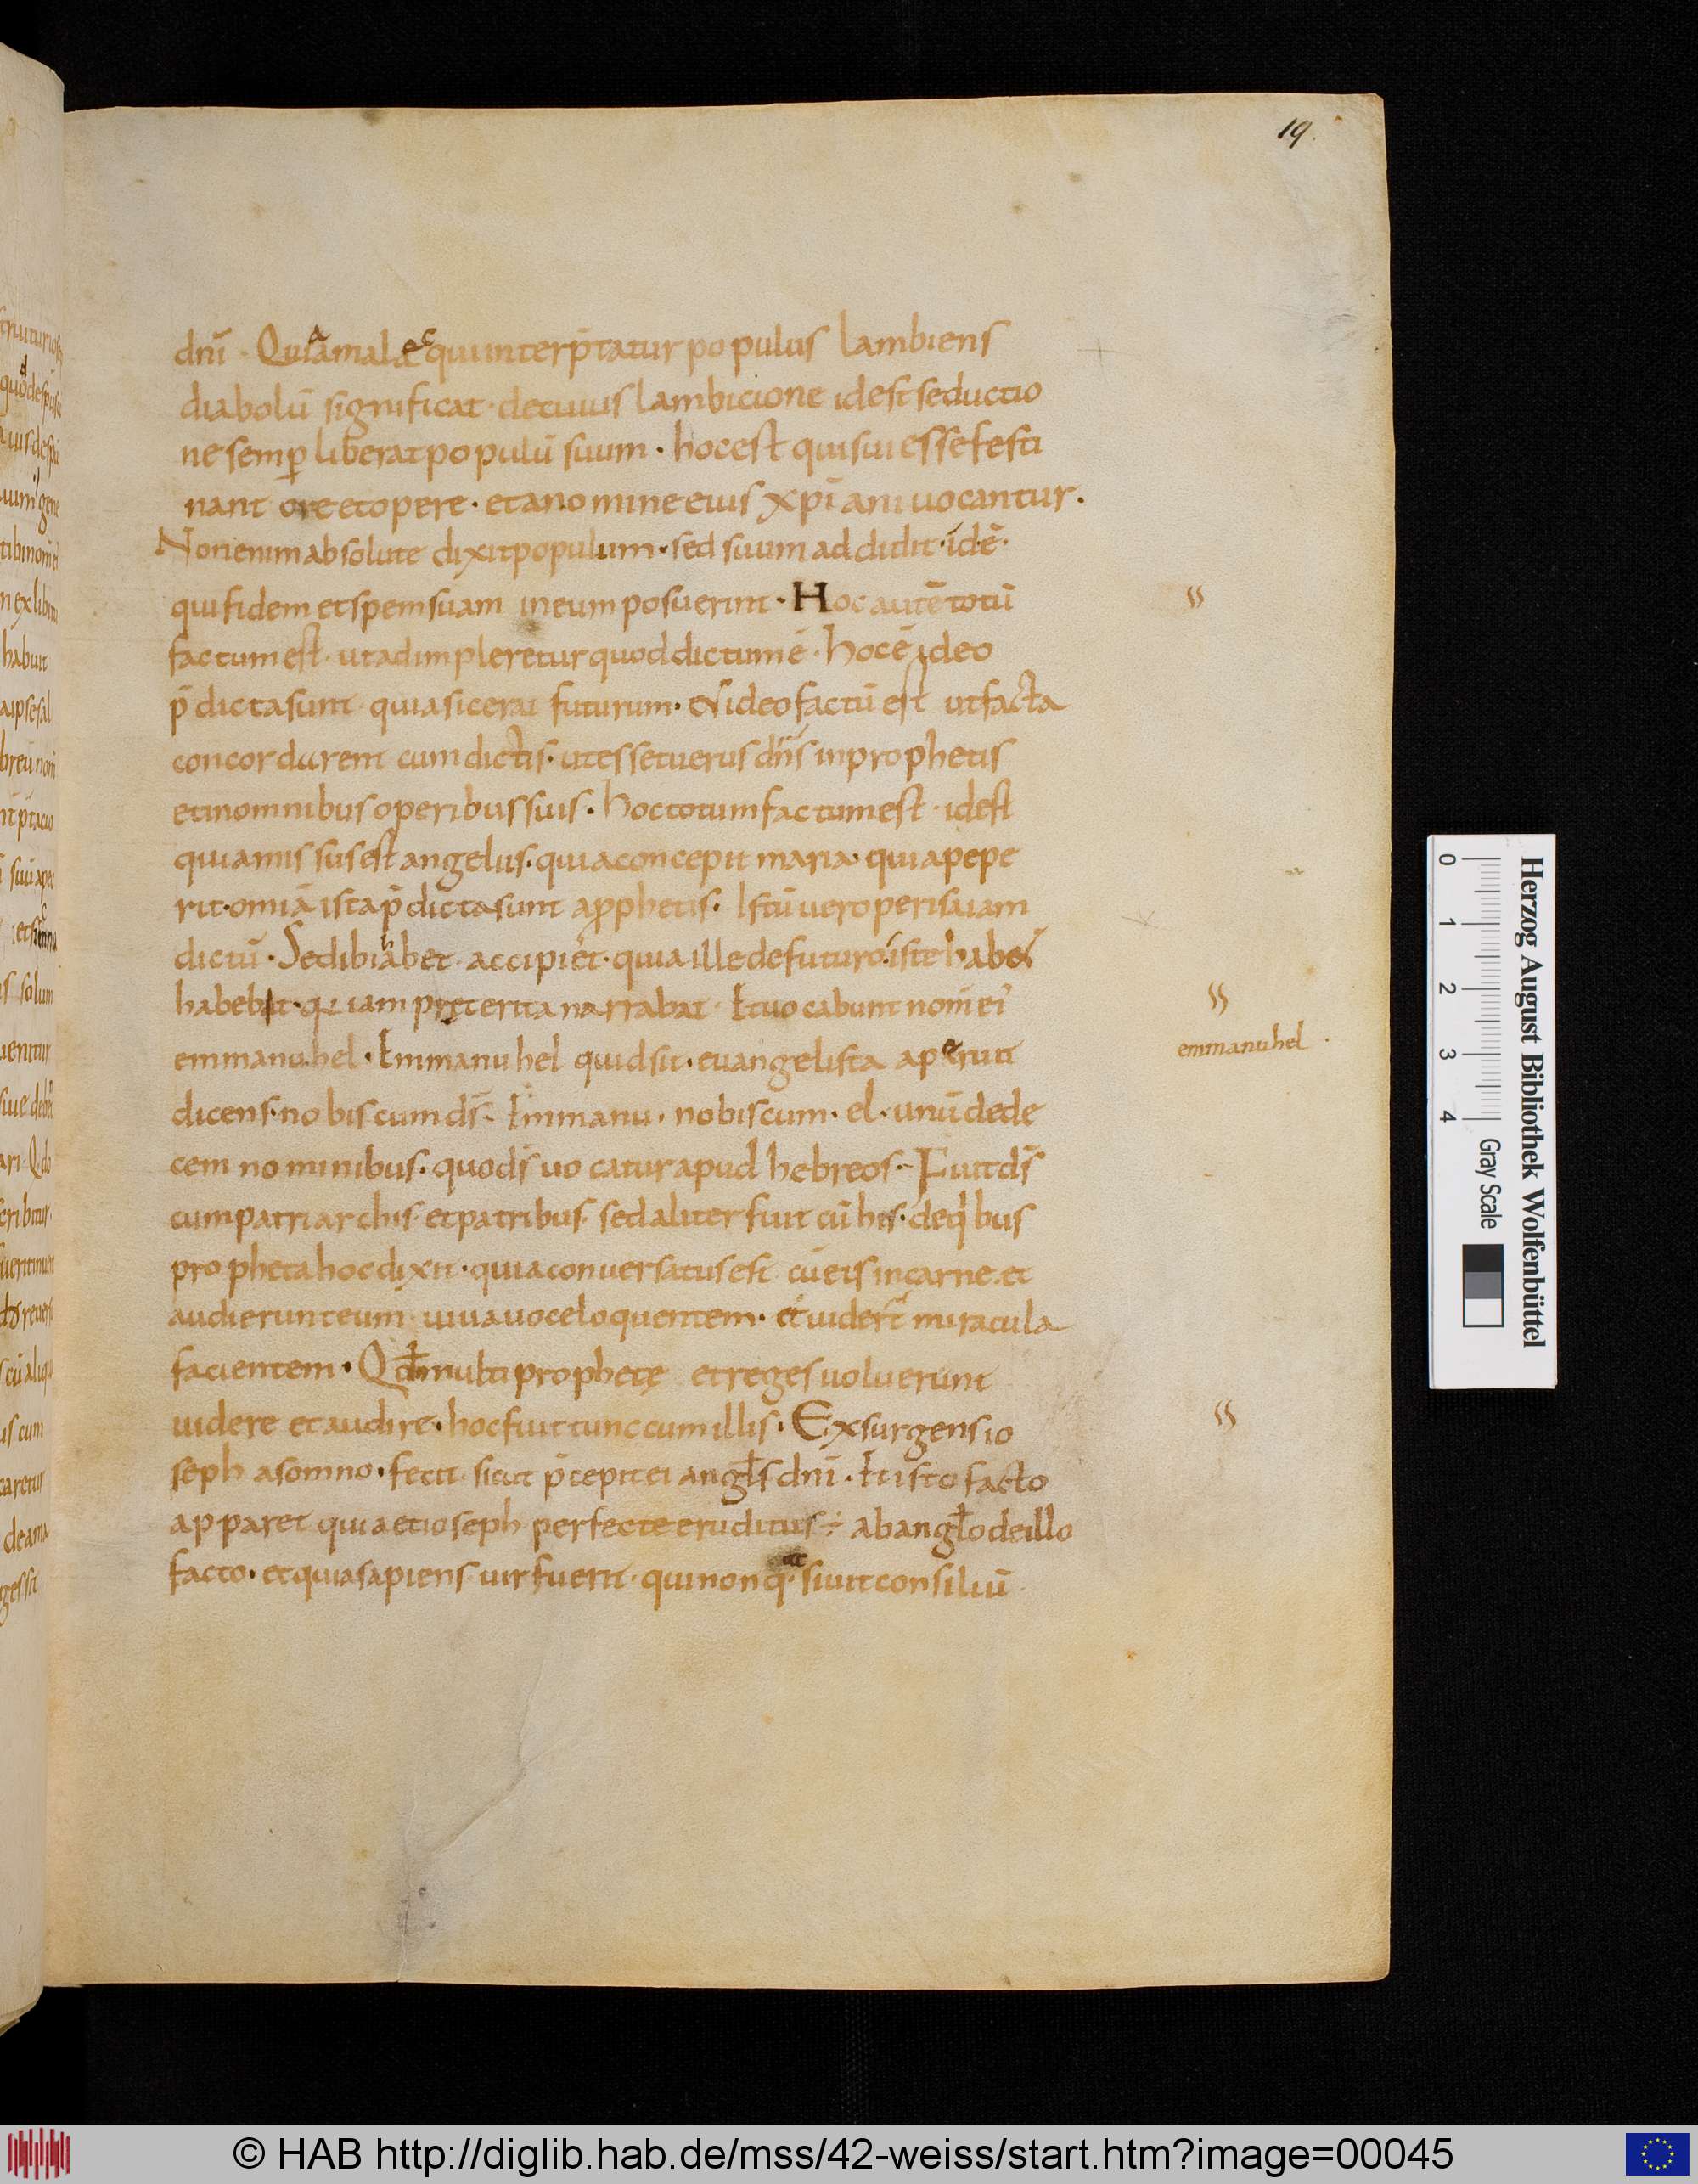 19.
dnī · Quia amalaec qui interp̄tatur populus lambiens
diabolū significat · de cuius lambicione id est seductio
ne semꝑ liberat populū suum · hoc est qui sui esse festi
nant ore et opere · et a nomine eius xp̄iani uocantur ·
Non enim absolute dixit populum · sed suum addidit · id ē ·
qui fidem et spem suam in eum posuerint · Hoc autē totū
factum est · ut adimpleretur quod dictum ē · hoc ē ideo
p̄dicta sunt quia sic erat futurum · & ideo factū est ut facta
concordarent cum dictis · ut esset uerus dn̄s in prophetis
et in omnibus operibus suis · hoc totum factum est · id est
quia missus est angelus · quia concepit maria · quia pepe
rit · omia ista p̄dicta sunt a ꝓphetis · Istū uero per isaiam
dictū · Sed ibi habet accipiet · quia ille de futuro · iste habet
habebit · qr iam preterita narrabat · Et uocabunt nom̄ ei'
emmanuhel · Emmanuhel quid sit · euangelista aperuit
dicens · nobiscum ds̄ · Emmanu · nobiscum · el · unū de de
cem nominibus · quo ds̄ uocatur apud hebreos · Fuit ds̄
cum patriarchis et patribus · sed aliter fuit cū his · de qibus
propheta hoc dixit · quia conuersatus est cū eis in carne · et
audierunt eum uiua uoce loquentem · et uider̄t miracula
facientem · Qd multi prophetę et reges uoluerunt
uidere et audire · hoc fuit tunc cum illis · Exsurgens io
seph a somno · fecit sicut p̄cepit ei angl̄s dnī · Et isto facto
apparet quia et ioseph perfecte eruditus ÷ ab angl̄o de illo
facto · et quia sapiens uir fuerit · qui non q siuit consiliū
emmanuhel ·
Herzog August Bibliothek Wolfenbüttel
0 1 2 3 4
Gray Scale
© HAB http://diglib.hab.de/mss/42-weiss/start.htm?image=00045